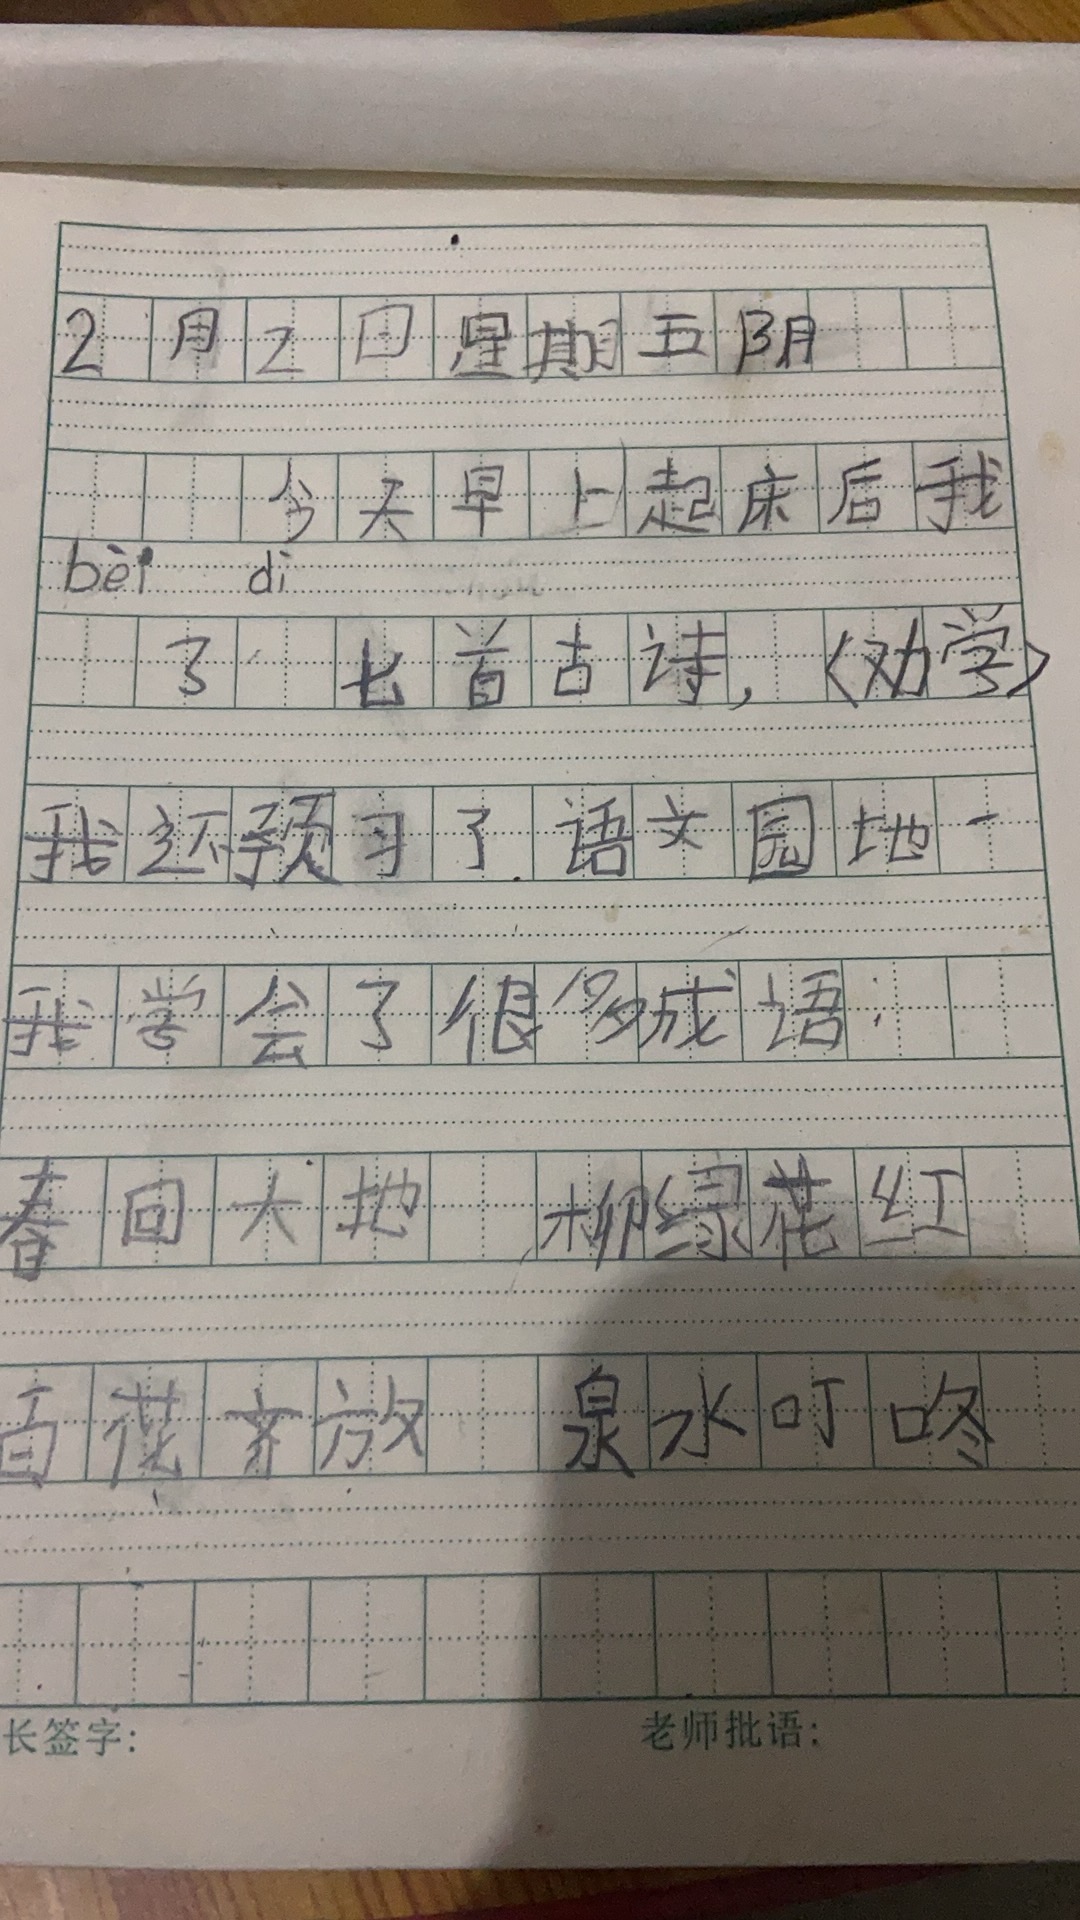 2月2日星期五阴
今天早上起床后我
bèi di
了 七首古诗,〈劝学〉
我还预习了.语文园地一
我学会了很多成语:
春回大地 柳绿花红
百花齐放 泉水叮咚
长签字: 老师批语: